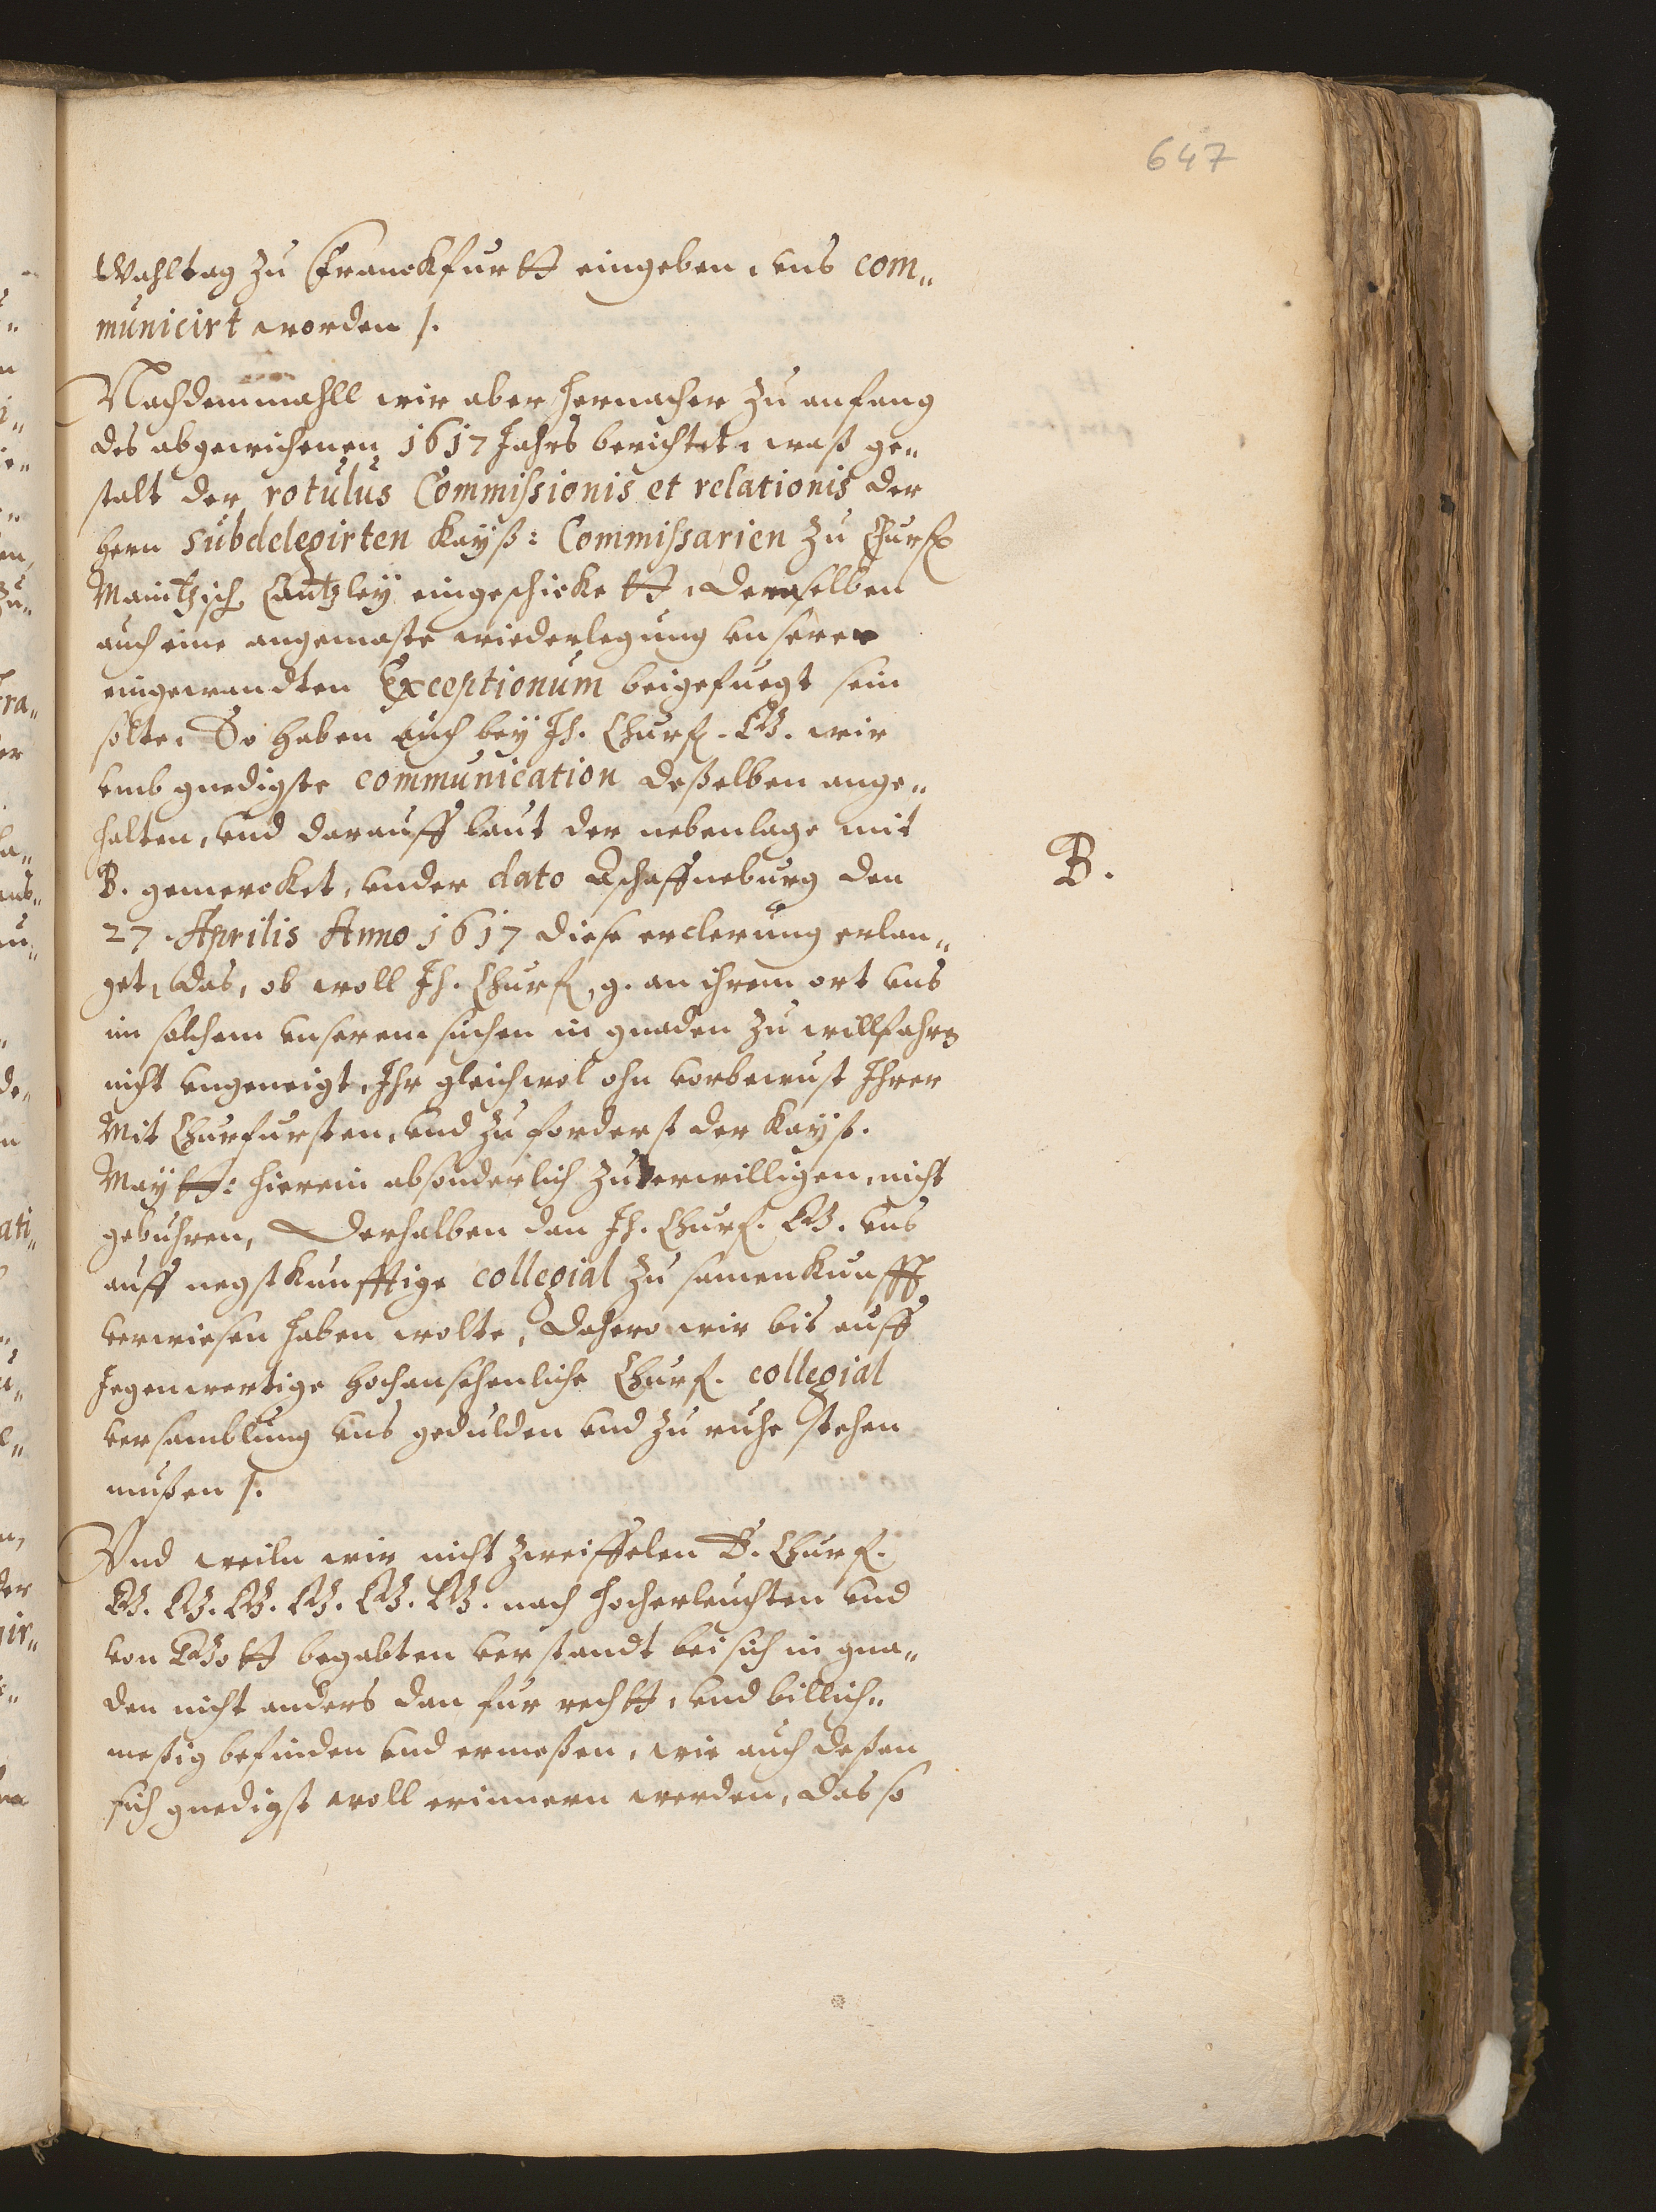 647
Wahltag zu Franckfurtt eingeben, vns com„
municirt worden /.
Nachdemmahll wir aber hernacher zu anfang
des abgewichenen 1617 Jahrs berichtet, waß ge„
stalt der rotulus Commissionis et relationis der
hern subdelegirten Kayß: Commissarien zu Churf
Maintzisch Cantzley eingeschickett, demselben
auch eine angemaste wiederlegung vnserer
eingewandten Exceptionum beigefuegt sein
solte, So haben auch bey Ih. Churf. G. wir
vmb gnedigste communication deßelben ange„
halten, vnd darauff laut der nebenlage mit
B. gemercket, vnder dato Aschaffneburg den
B.
27. Aprilis Anno 1617 diese erclerung erlan„
get, das, ob woll Ih. Churf. g. an ihrem ort vns
im solchem vnserem suchen in gnaden zu willfahren
nicht vngeneigt, Ihr gleichwol ohn vorbewust Ihrer
Mit Churfursten, vnd zu forderst der Kayß.
Maytt: hierein absonderlich zuverwilligen, nicht
gebuhren, Derhalben dan Ih. Churf. G. vns
auff negstkunfftige collegial zusamenkunfft
verwiesen haben wolte, Dahero wir bis auff
Jegenwertige hochansehenliche Churf. collegial
versamblung vns gedulden vnd zu ruhe stehen
mußen /.
Vnd weiln wir nicht zweiffelen E. Churf.
G. G. G. G. G. G. nach hocherleuchten vnd
von Gott begabten verstandt bei sich in gna„
den nicht anders dan fur rechtt, vnd billich„
meßig befinden vnd ermeßen, wie auch deßen
sich gnedigst woll erinnern werden, das so